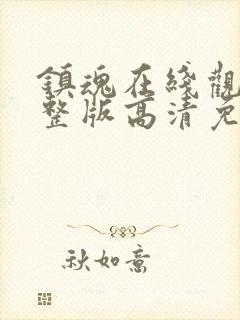 鎮魂在綫觀
整版高清免
秋如意